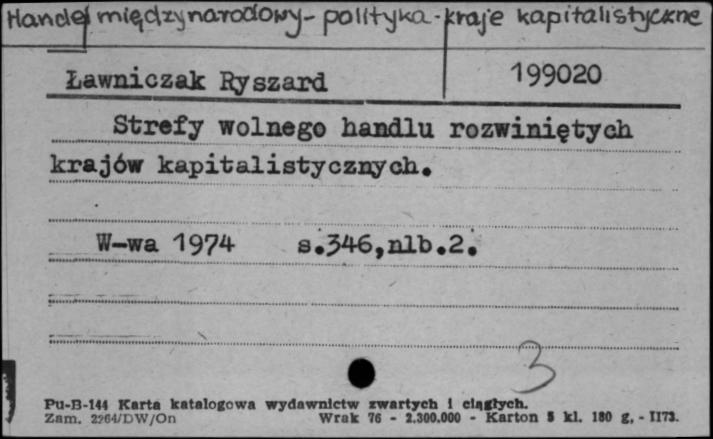 Handel międzynarodowy - polityka - kraje kapitalistyczne
Ławniczak Ryszard 199020
Strefy wolnego handlu rozwiniętych
krajów kapitalistycznych.
W-wa 1974 s.346,nlb.2.
3
Pu-B-144 Karta katalogowa wydawnictw zwartych i ciągłych.
Zam. 2264/DW/On Wrak 76 - 2.300.000 - Karton 5 kl. 180 g. - II73.